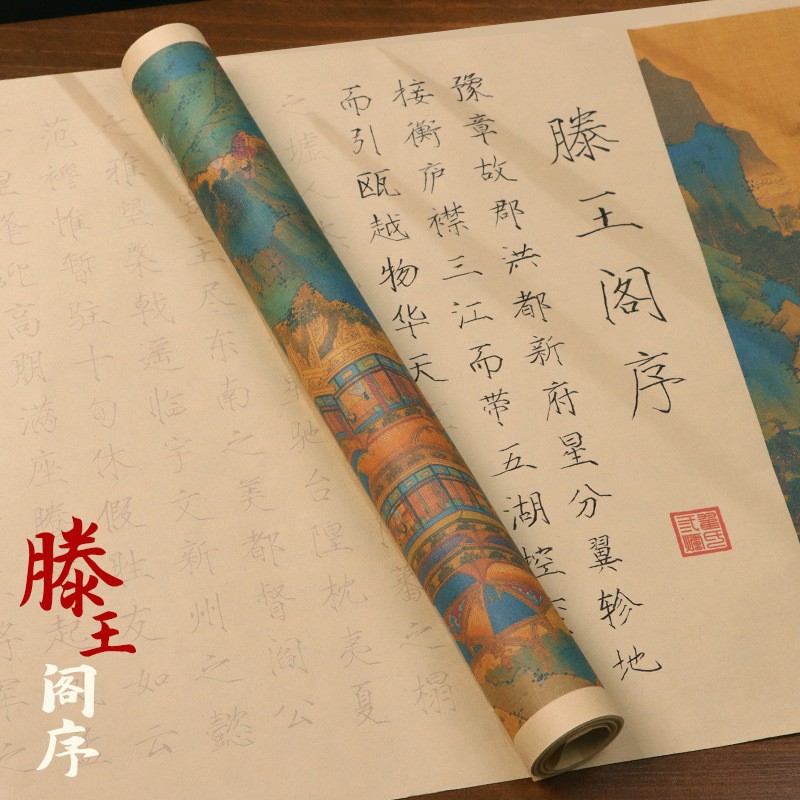 滕王阁序
豫章故郡洪都新府星分翼轸地
接衡庐襟三江而带五湖控
而引瓯越物华天
之墟人 蕃之榻
驰台隍枕夷夏
主尽东南之美都督阎公
之雅望棨戟遥临宇文新州之懿
范襜惟暂驻十旬休假胜友如云
里逢迎高朋满座腾 起
将军之
滕王
阁序